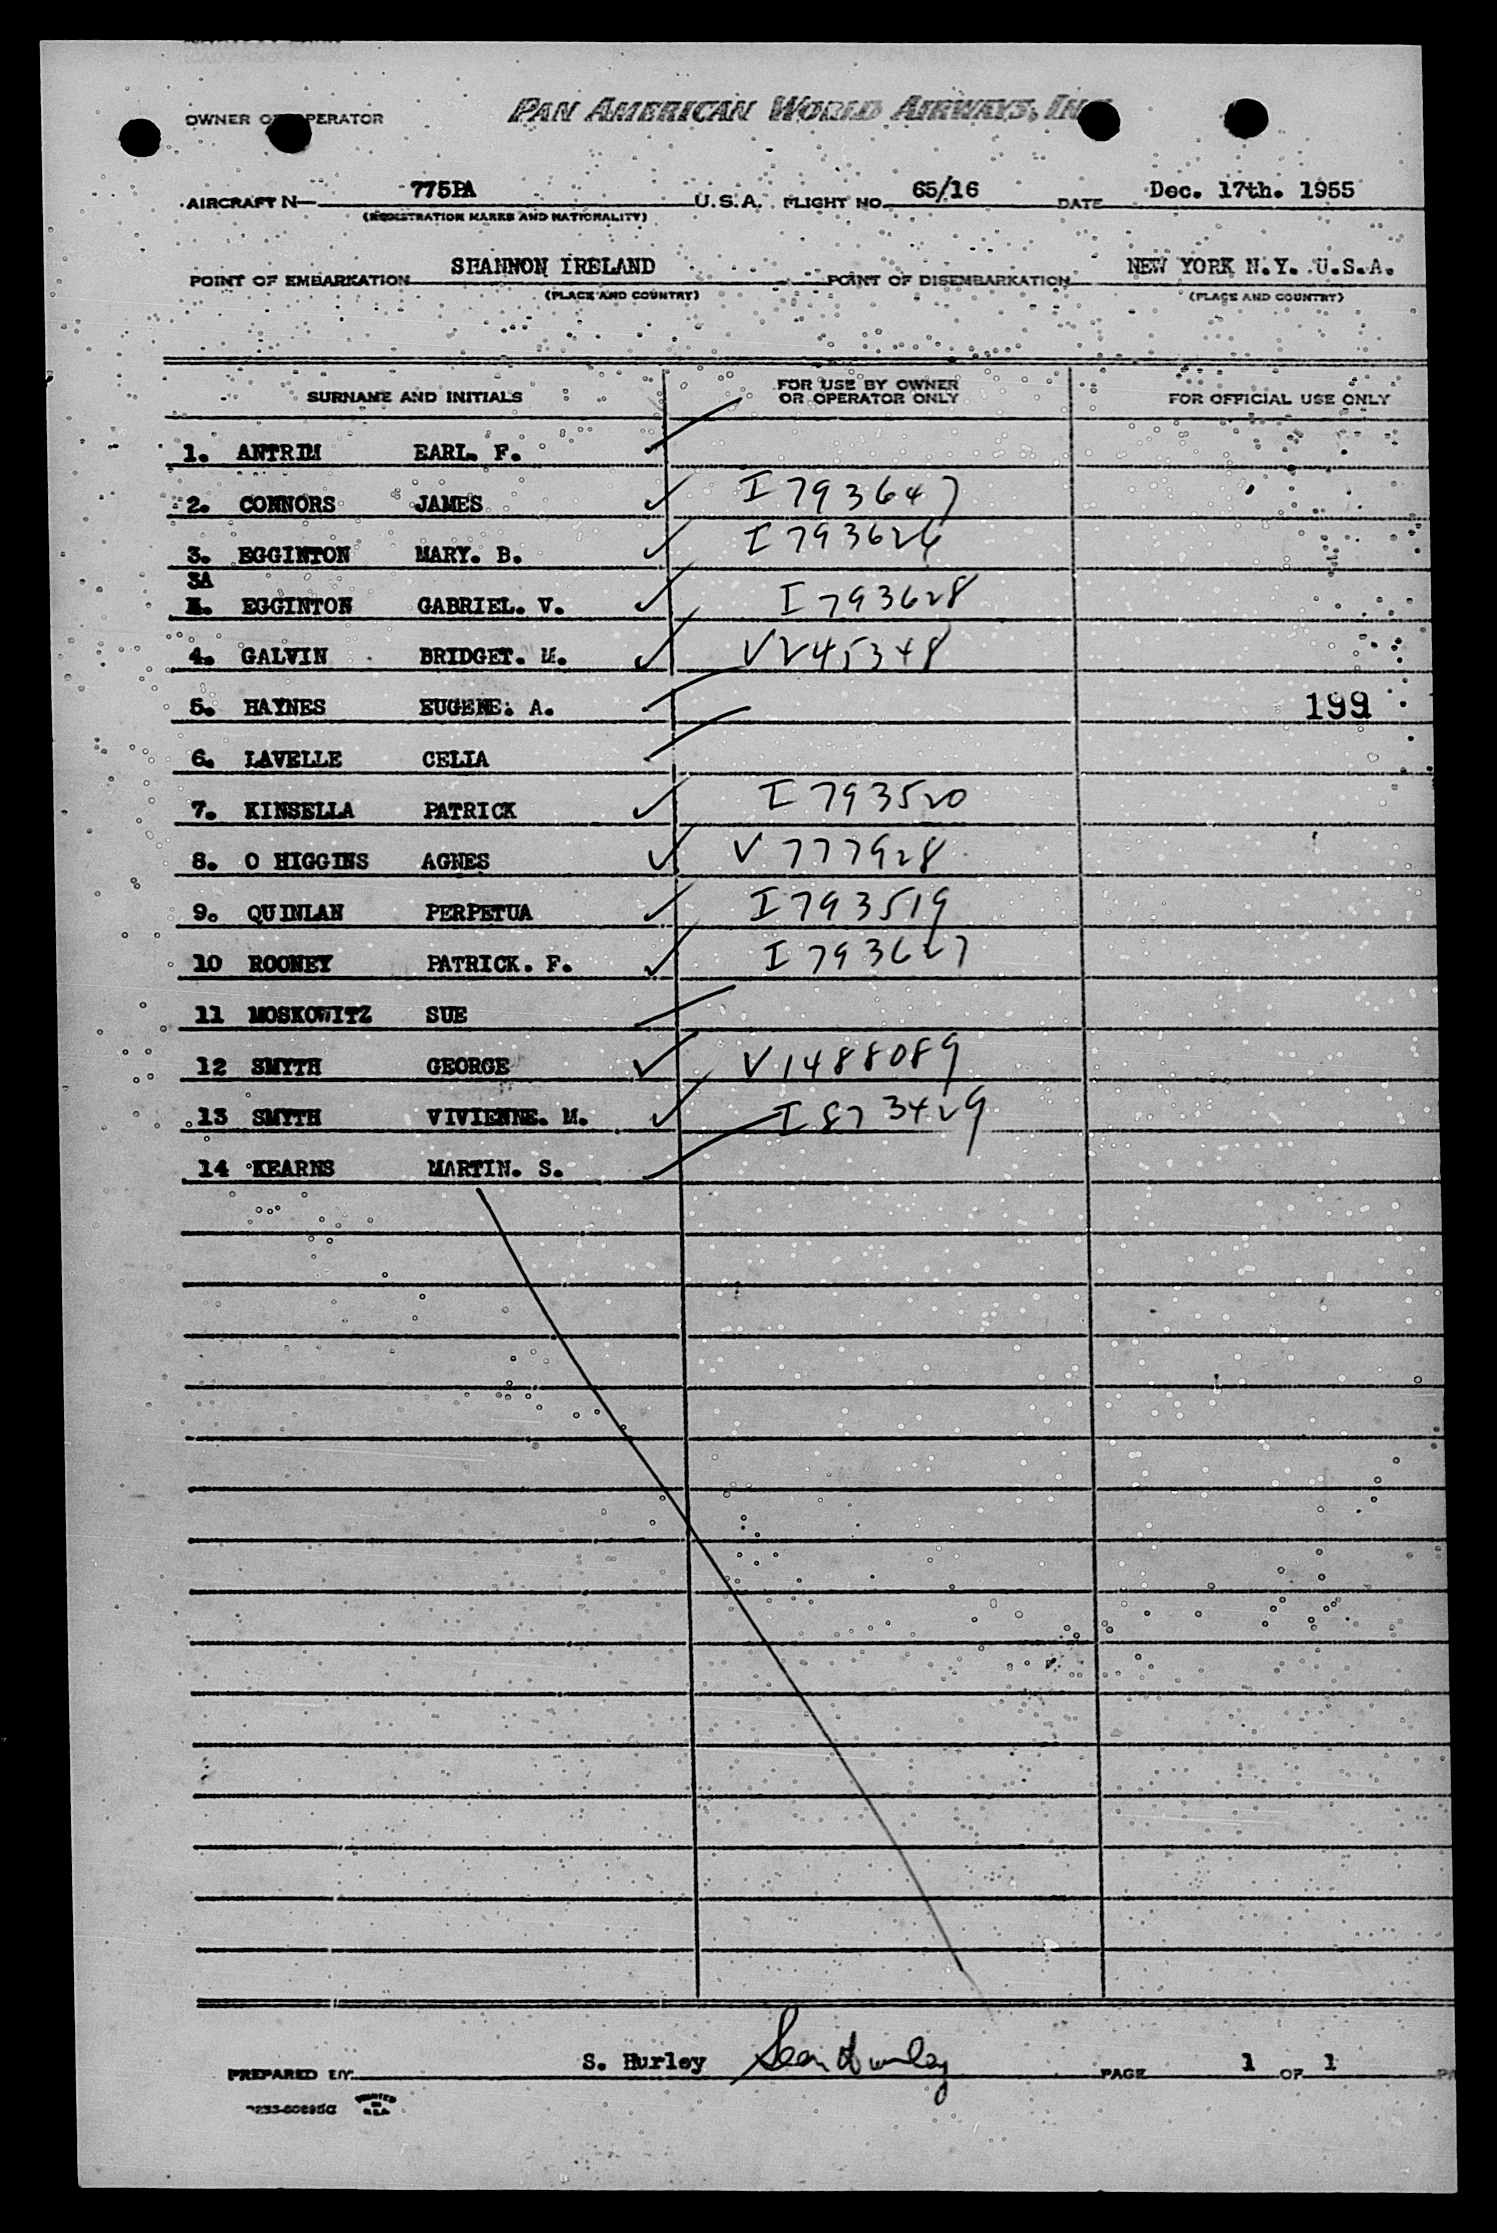 OWNER OR OPERATOR PAN AMERICAN WORLD AIRWAYS, INC.
AIRCRAFT N- 775PA U.S.A. FLIGHT NO. 65/16 DATE Dec. 17th. 1955
(REGISTRATION MARKS AND NATIONALITY)
POINT OF EMBARKATION SHANNON IRELAND POINT OF DISEMBARKATION NEW YORK N.Y. U.S.A.
(PLACE AND COUNTRY) (PLACE AND COUNTRY)
SURNAME AND INITIALS FOR USE BY OWNER OR OPERATOR ONLY FOR OFFICIAL USE ONLY
1. ANTRIM EARL. F.
2. CONNORS JAMES I 793647
3. EGGINTON MARY. B. I 793626
3A EGGINTON GABRIEL. V. I 793628
4. GALVIN BRIDGET. M. V V45348
5. HAYNES EUGENE. A. 199
6. LAVELLE CELIA
7. KINSELLA PATRICK I 793520
8. O HIGGINS AGNES V 777928
9. QUINLAN PERPETUA I 793519
10 ROONEY PATRICK. F. I 793627
11 MOSKOWITZ SUE
12 SMYTH GEORGE V1488089
13 SMYTH VIVIENNE. M. I 873429
14 KEARNS MARTIN. S.
PREPARED BY S. Hurley Sean Hurley PAGE 1 OF 1
PRINTED IN U.S.A.